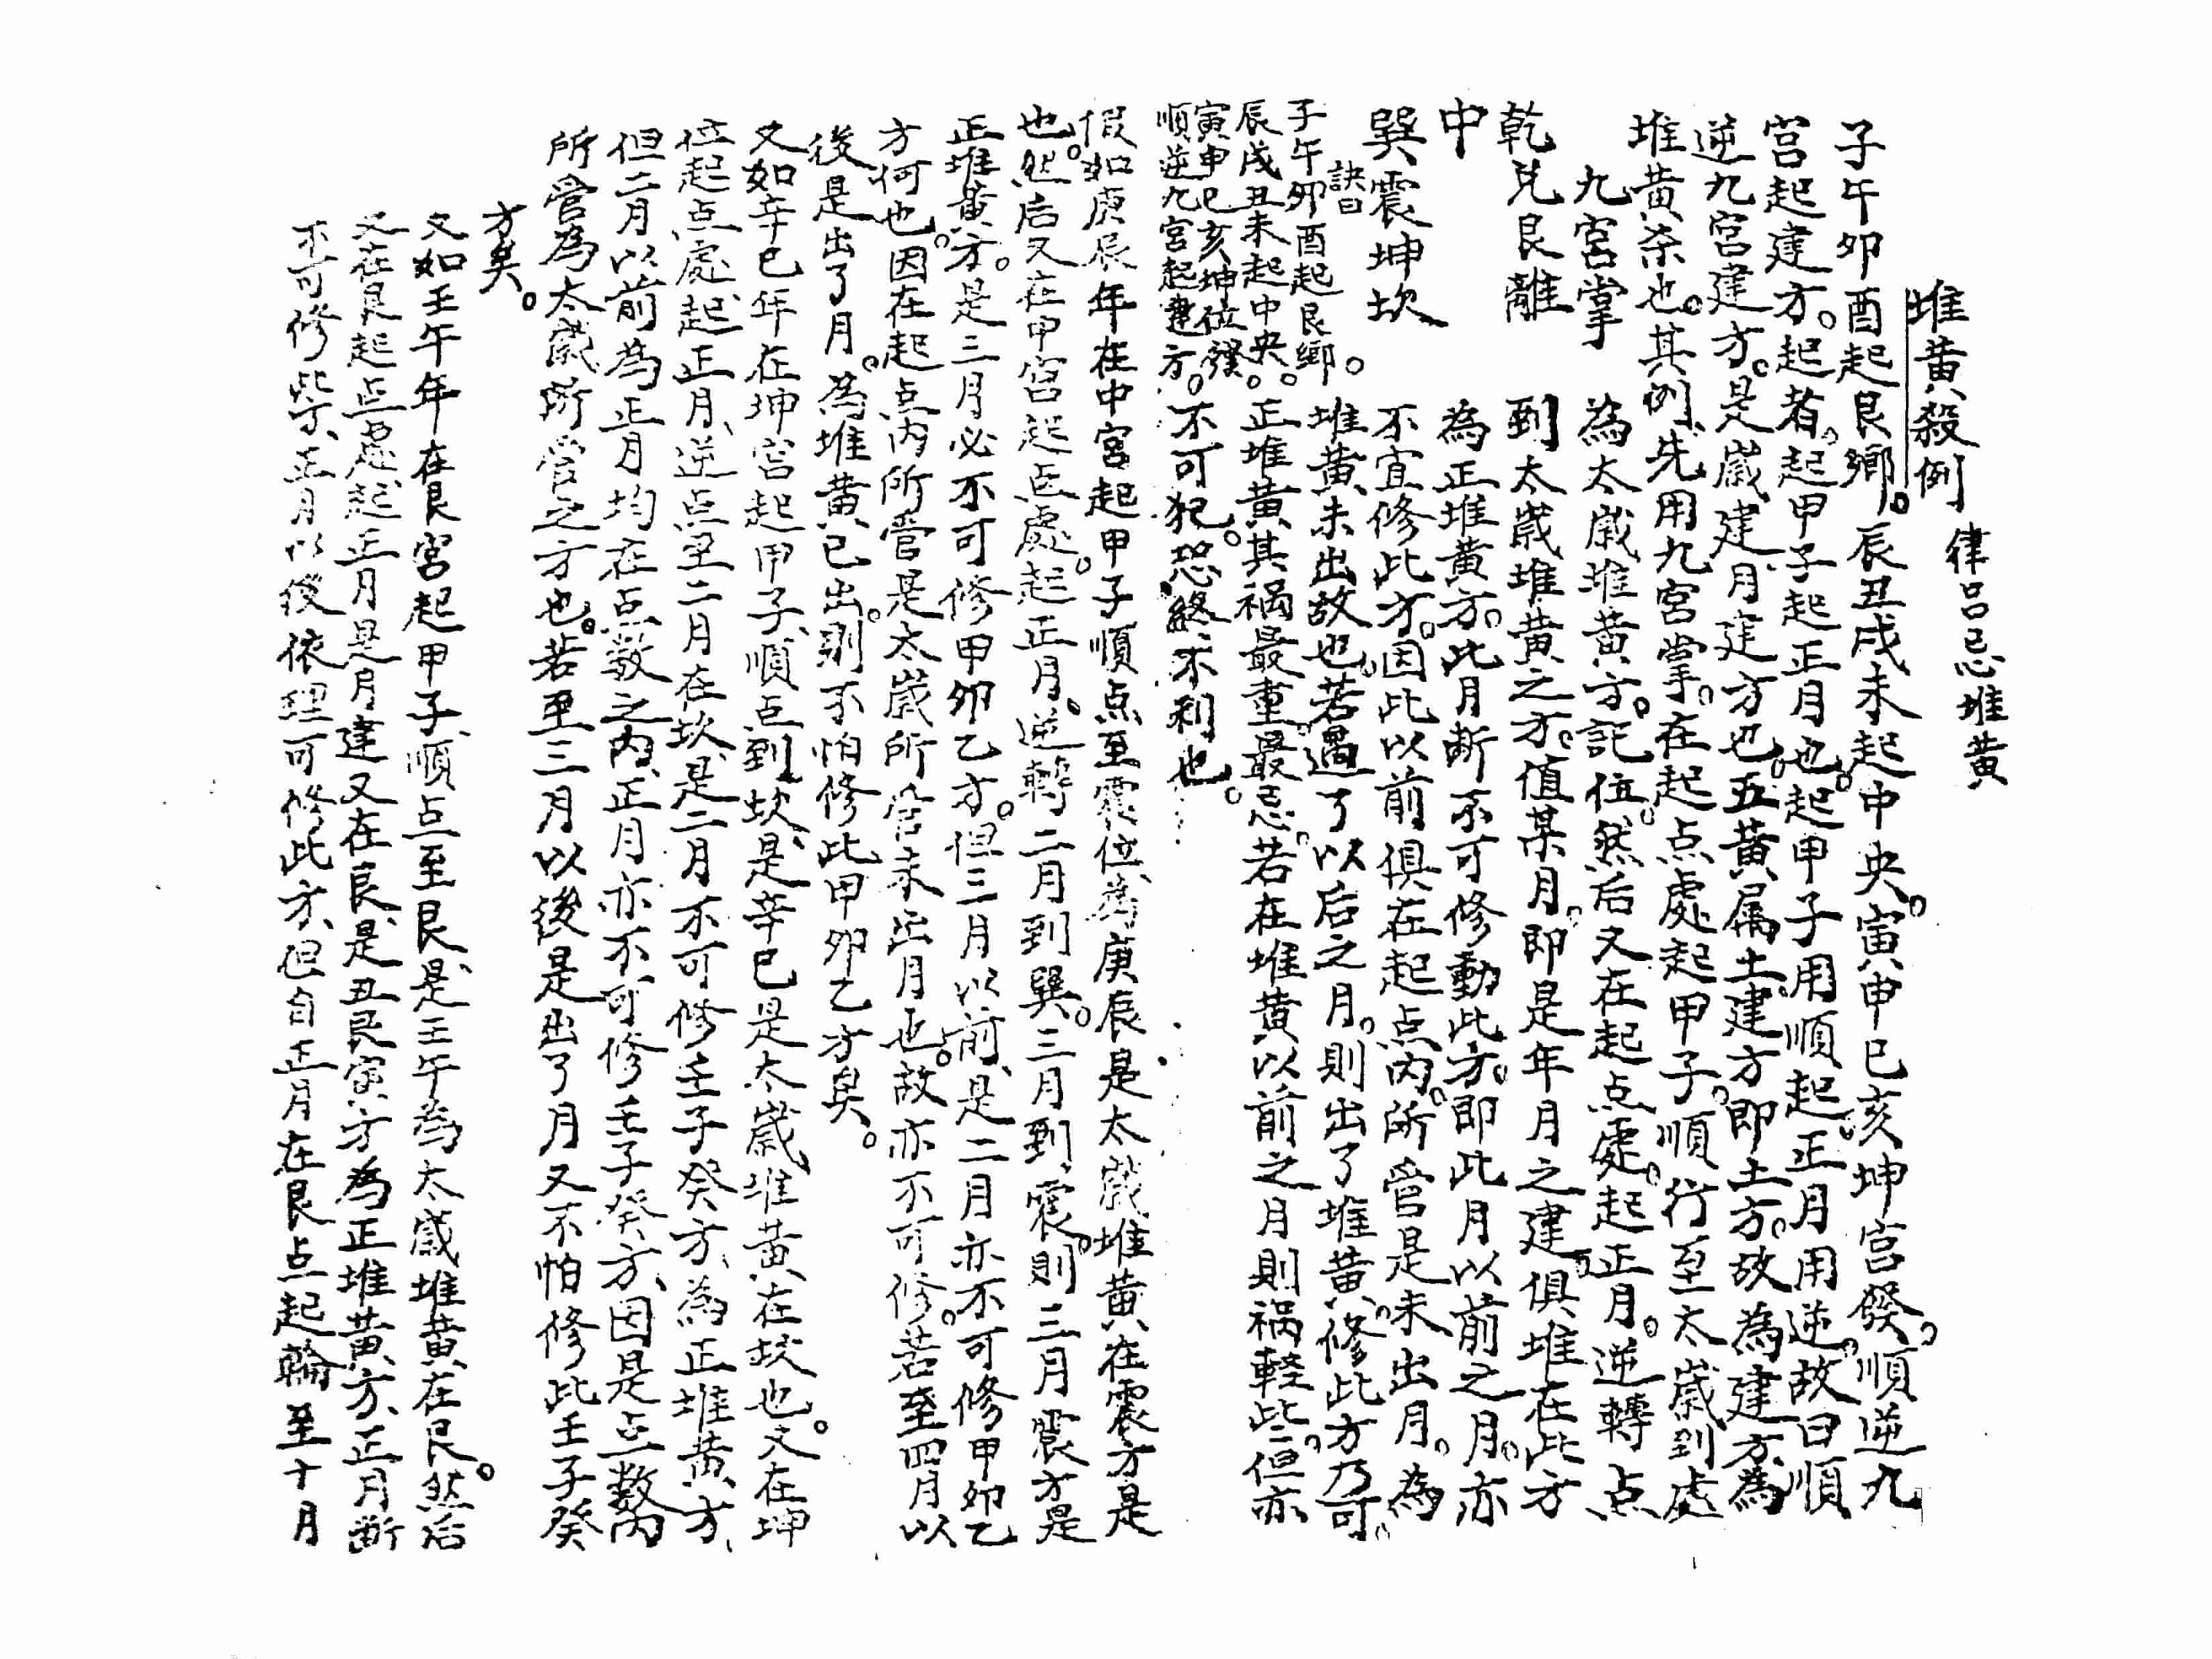 堆黄殺例　律呂忌堆黄
子午卯酉起艮鄉。辰丑戌未起中央。寅申巳亥坤宫發。順逆九
宫起建方。起者。起甲子起正月也。起甲子用順起。正月用逆。故曰順
逆九宫建方。是歲建月建方也。五黄属土建方即土方。故為建方。為
堆黄杀也。其例先用九宮掌。在起点處起甲子。順行至太歲到處
九宮掌
為太歲堆黄方。記位。然后又在起点處。起正月。逆轉点
乾兑艮離
到太歲堆黄之方。值某月。即是年月之建俱堆在此方
中
為正堆黄方。此月断不可修動此方。即此月以前之月。亦
巽震坤坎
不宜修此方。因此以前俱在起点内。所管是未出月。為
訣曰
子午卯酉起艮鄉。
堆黄未出故也。若過了以后之月。則出了堆黄。修此方乃可。
辰戌丑未起中央。
正堆黄其禍最重最忌。若在堆黄以前之月則禍輕些。但亦
寅申巳亥坤位發。
順逆九宮起建方。
不可犯。恐終不利也。
假如庚辰年在中宮起甲子順点至震位為庚辰是太歲堆黄在震方是
也。然后又在中宮起点處。起正月。逆轉二月到巽。三月到震。則三月震方是
正堆黄方。是三月必不可修甲卯乙方。但三月以前、是二月亦不可修甲卯乙
方何也。因在起点内所管是太歲所管未出月也。故亦不可修。若至四月以
後是出了月。為堆黄已出。則不怕修此甲卯乙方矣。
又如辛巳年在坤宮起甲子、順点到坎、是辛巳是太歲堆黄在坎也。又在坤
位起点處、起正月、逆点至二月在坎、是二月不可修壬子癸方、為正堆黄方、
但二月以前為正月均在点數之内、正月亦不可修壬子癸方、因是点數内
所管為太歲所管之方也。若至三月以後是出了月又不怕修此壬子癸
方矣。
又如壬午年在艮宮起甲子、順点至艮、是壬午為太歲堆黄在艮。然后
又在艮起点處起正月是月建又在艮、是丑艮寅方為正堆黄方、正月断
不可修此方、正月以後依理可修此方、但自正月在艮点起輪至十月